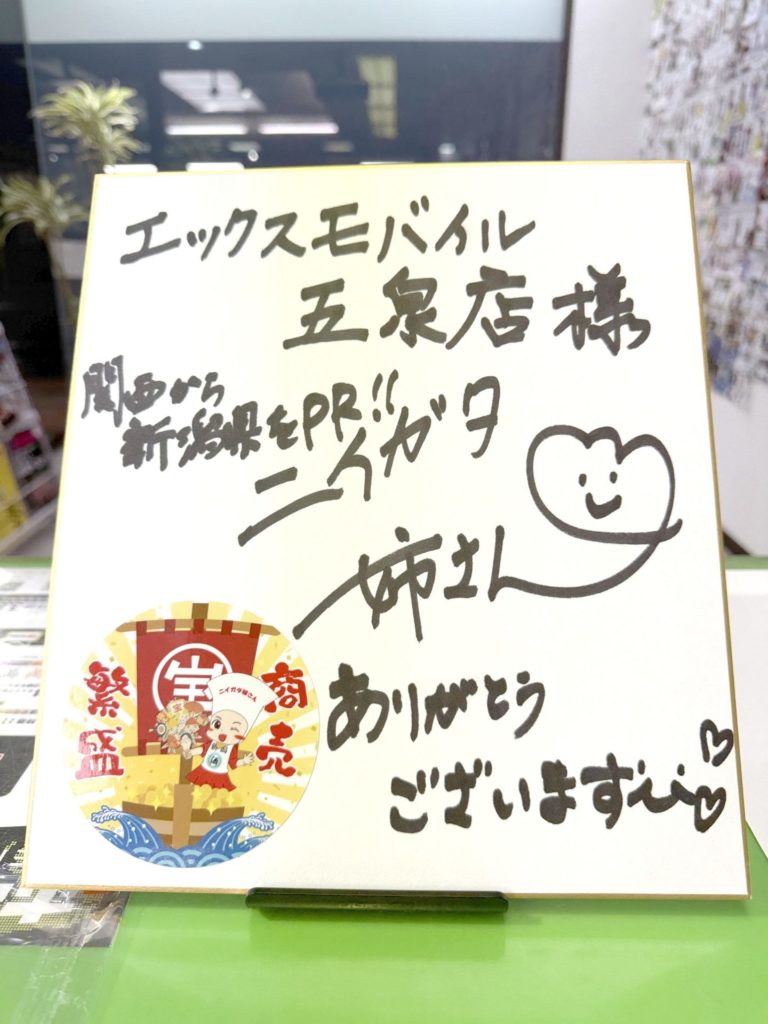 エックスモバイル
五泉店様
関西から
新潟県をPR!!
ニイガタ
姉さん
ありがとう
ございます
商売
繁盛
宝
ニイガタ姉さん